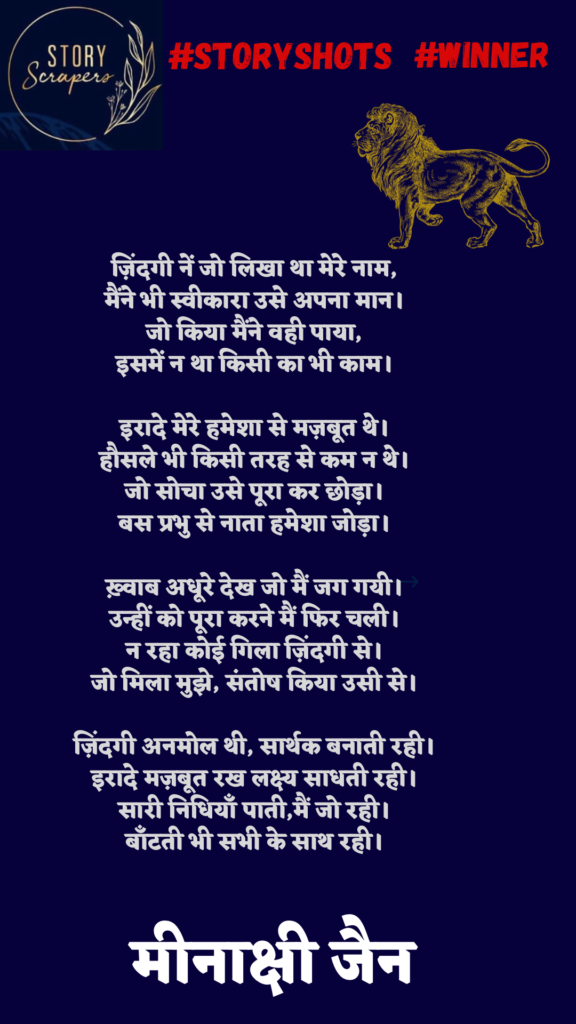 STORY
Scrapers
#STORYSHOTS #WINNER
ज़िंदगी नें जो लिखा था मेरे नाम,
मैंने भी स्वीकारा उसे अपना मान।
जो किया मैंने वही पाया,
इसमें न था किसी का भी काम।
इरादे मेरे हमेशा से मज़बूत थे।
हौसले भी किसी तरह से कम न थे।
जो सोचा उसे पूरा कर छोड़ा।
बस प्रभु से नाता हमेशा जोड़ा।
ख़्वाब अधूरे देख जो मैं जग गयी।
उन्हीं को पूरा करने मैं फिर चली।
न रहा कोई गिला ज़िंदगी से।
जो मिला मुझे, संतोष किया उसी से।
ज़िंदगी अनमोल थी, सार्थक बनाती रही।
इरादे मज़बूत रख लक्ष्य साधती रही।
सारी निधियाँ पाती,मैं जो रही।
बाँटती भी सभी के साथ रही।
मीनाक्षी जैन